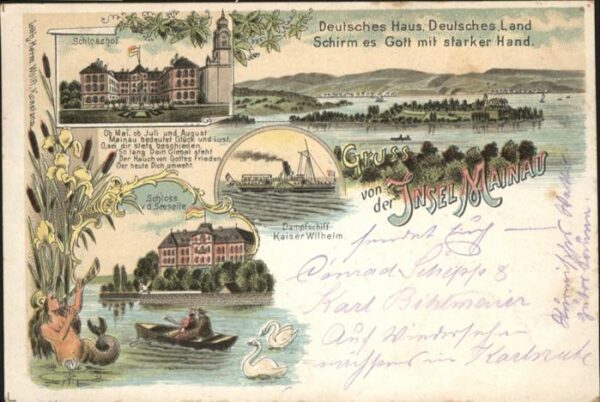 Deutsches Haus, Deutsches Land
Schirm es Gott mit starker Hand.
Schlosshof
Ob Mai, ob Juli und August
Mainau bedeutet Glück und Lust.
O, sei dir stets beschieden,
So lang Dein Giebel steht
Der Hauch von Gottes Frieden
Der heute Dich umweht.
Gruss
von der
Insel Mainau
Dampfschiff
Kaiser Wilhelm.
Schloss
v.d. Seeseite
sendet Euch
Conrad &
Karl
Auf Wiedersehen
nächstens in Karlsruhe